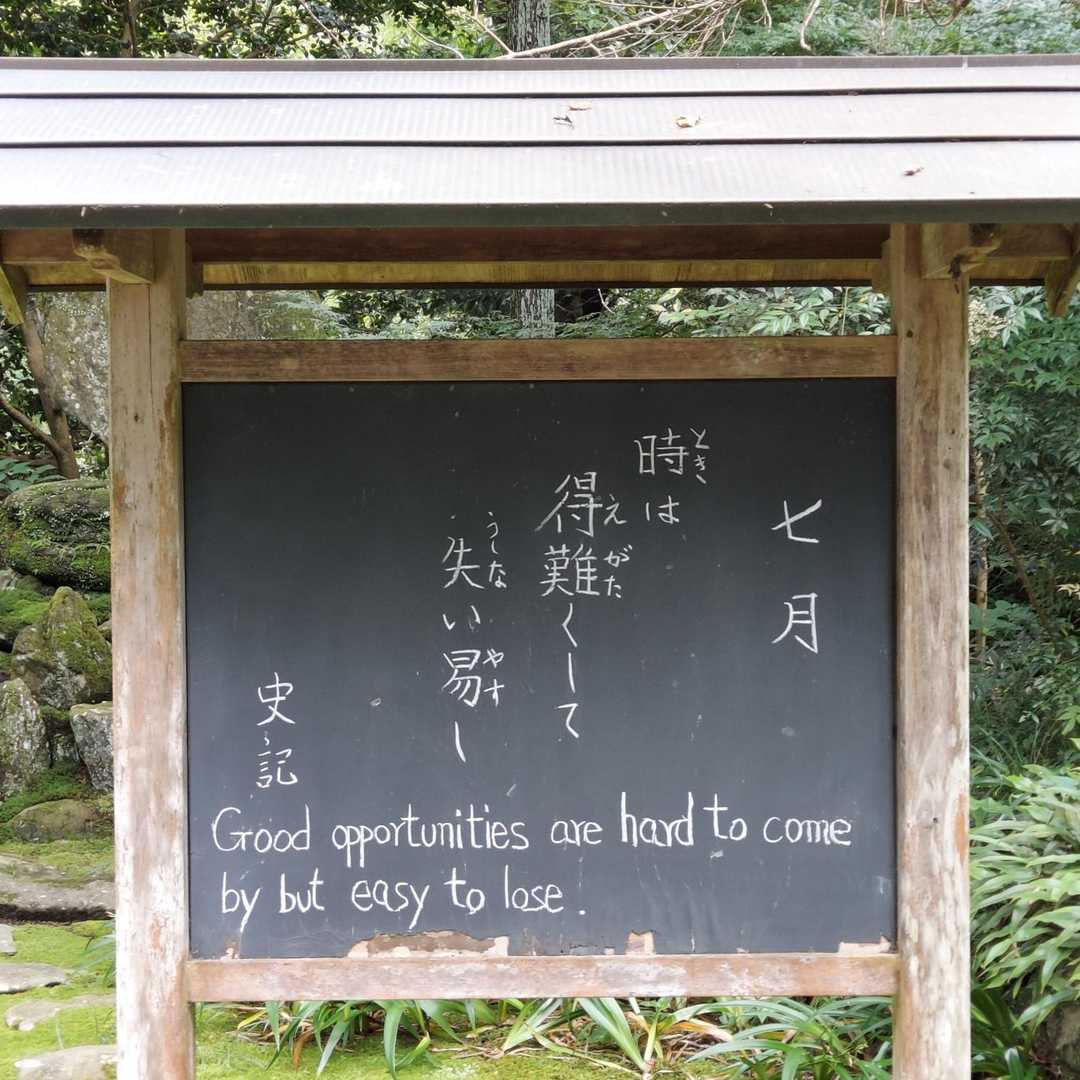 七月
時は
とき
得難くして
え がた
失い易し
うしな やす
史記
Good opportunities are hard to come
by but easy to lose.